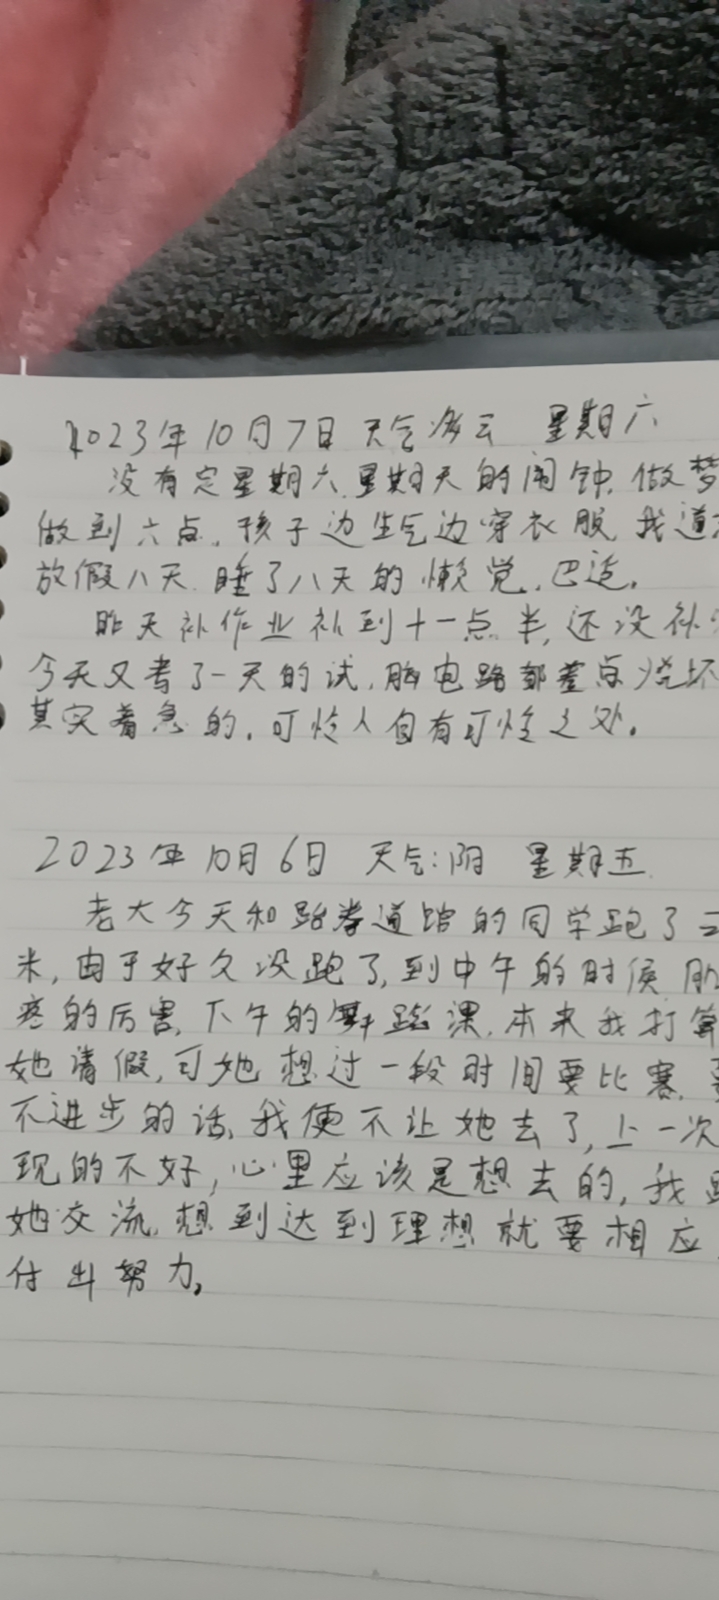 2023年10月7日 天气多云 星期六
没有定星期六、星期天的闹钟,做梦
做到六点,孩子边生气边穿衣服,我道
放假八天,睡了八天的懒觉,巴适。
昨天补作业补到十一点半,还没补
今天又考了一天的试,脑电路都差点烧坏
其实着急的,可怜人自有可怜之处。
2023年10月6日 天气:阴 星期五
老大今天和跆拳道馆的同学跑了三
米,由于好久没跑了,到中午的时候
疼的厉害,下午的舞蹈课,本来我打算
她请假,可她想过一段时间要比赛,
不进步的话,我便不让她去了,上一次
现的不好,心里应该是想去的,我
她交流,想到达到理想就要相应
付出努力。